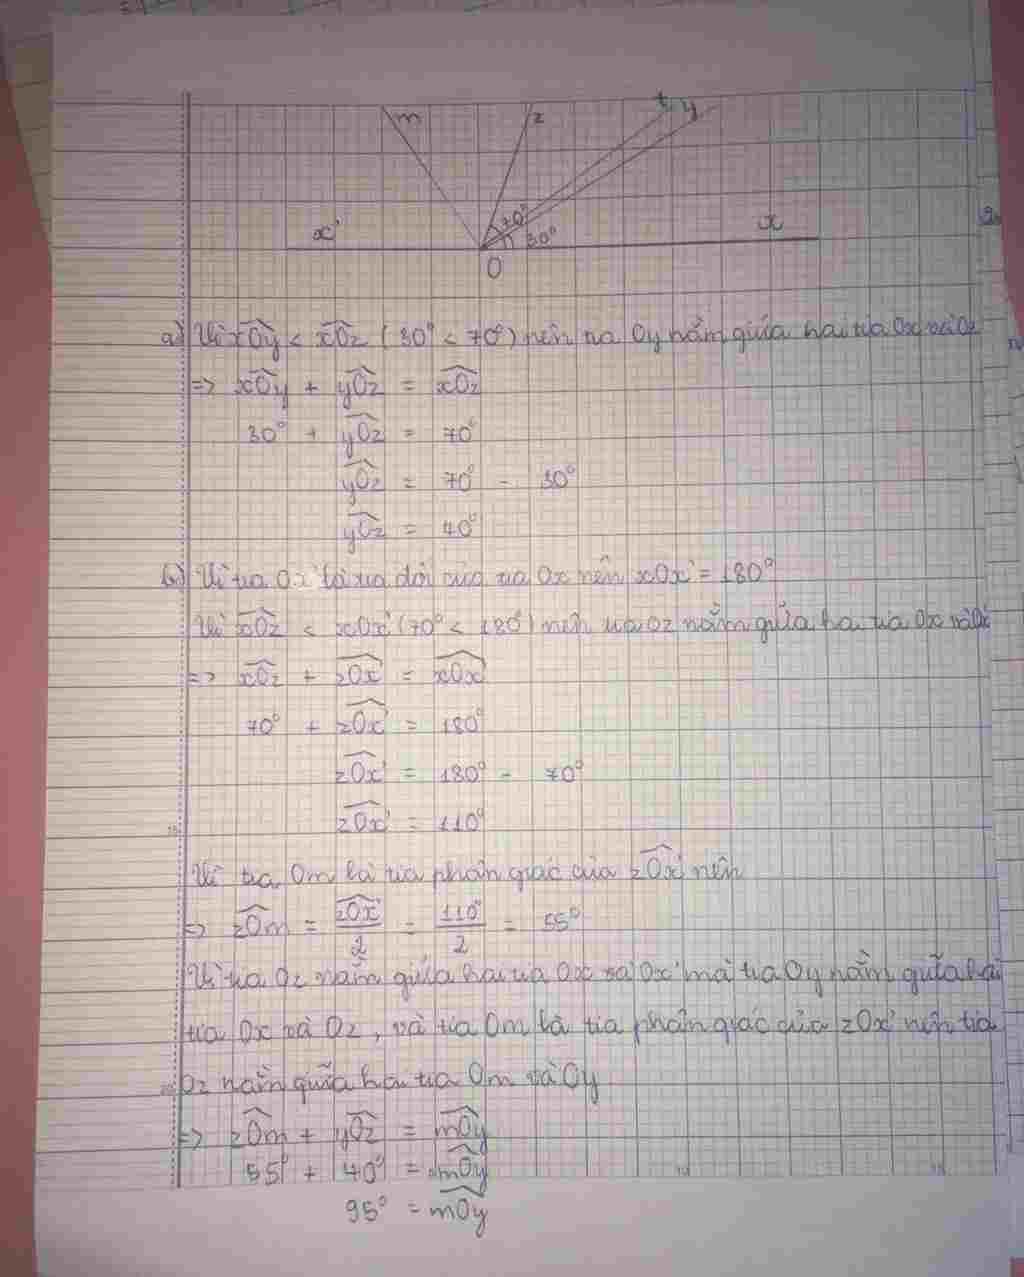 m z t y
70°
x' 30° x
O
a) Vì xOy < xOz (30° < 70°) nên tia Oy nằm giữa hai tia Ox và Oz
=> xOy + yOz = xOz
30° + yOz = 70°
yOz = 70° - 30°
yOz = 40°
b) Vì tia Ox' là tia đối của tia Ox nên xOx' = 180°
Vì xOz < xOx' (70° < 180°) nên tia Oz nằm giữa hai tia Ox và Ox'
=> xOz + zOx' = xOx'
70° + zOx' = 180°
zOx' = 180° - 70°
zOx' = 110°
Vì tia Om là tia phân giác của zOx' nên
=> zOm = zOx'/2 = 110°/2 = 55°
Vì tia Oz nằm giữa hai tia Ox và Ox' mà tia Oy nằm giữa hai
tia Ox và Oz, và tia Om là tia phân giác của zOx' nên tia
Oz nằm giữa hai tia Om và Oy
=> zOm + yOz = mOy
55° + 40° = mOy
95° = mOy